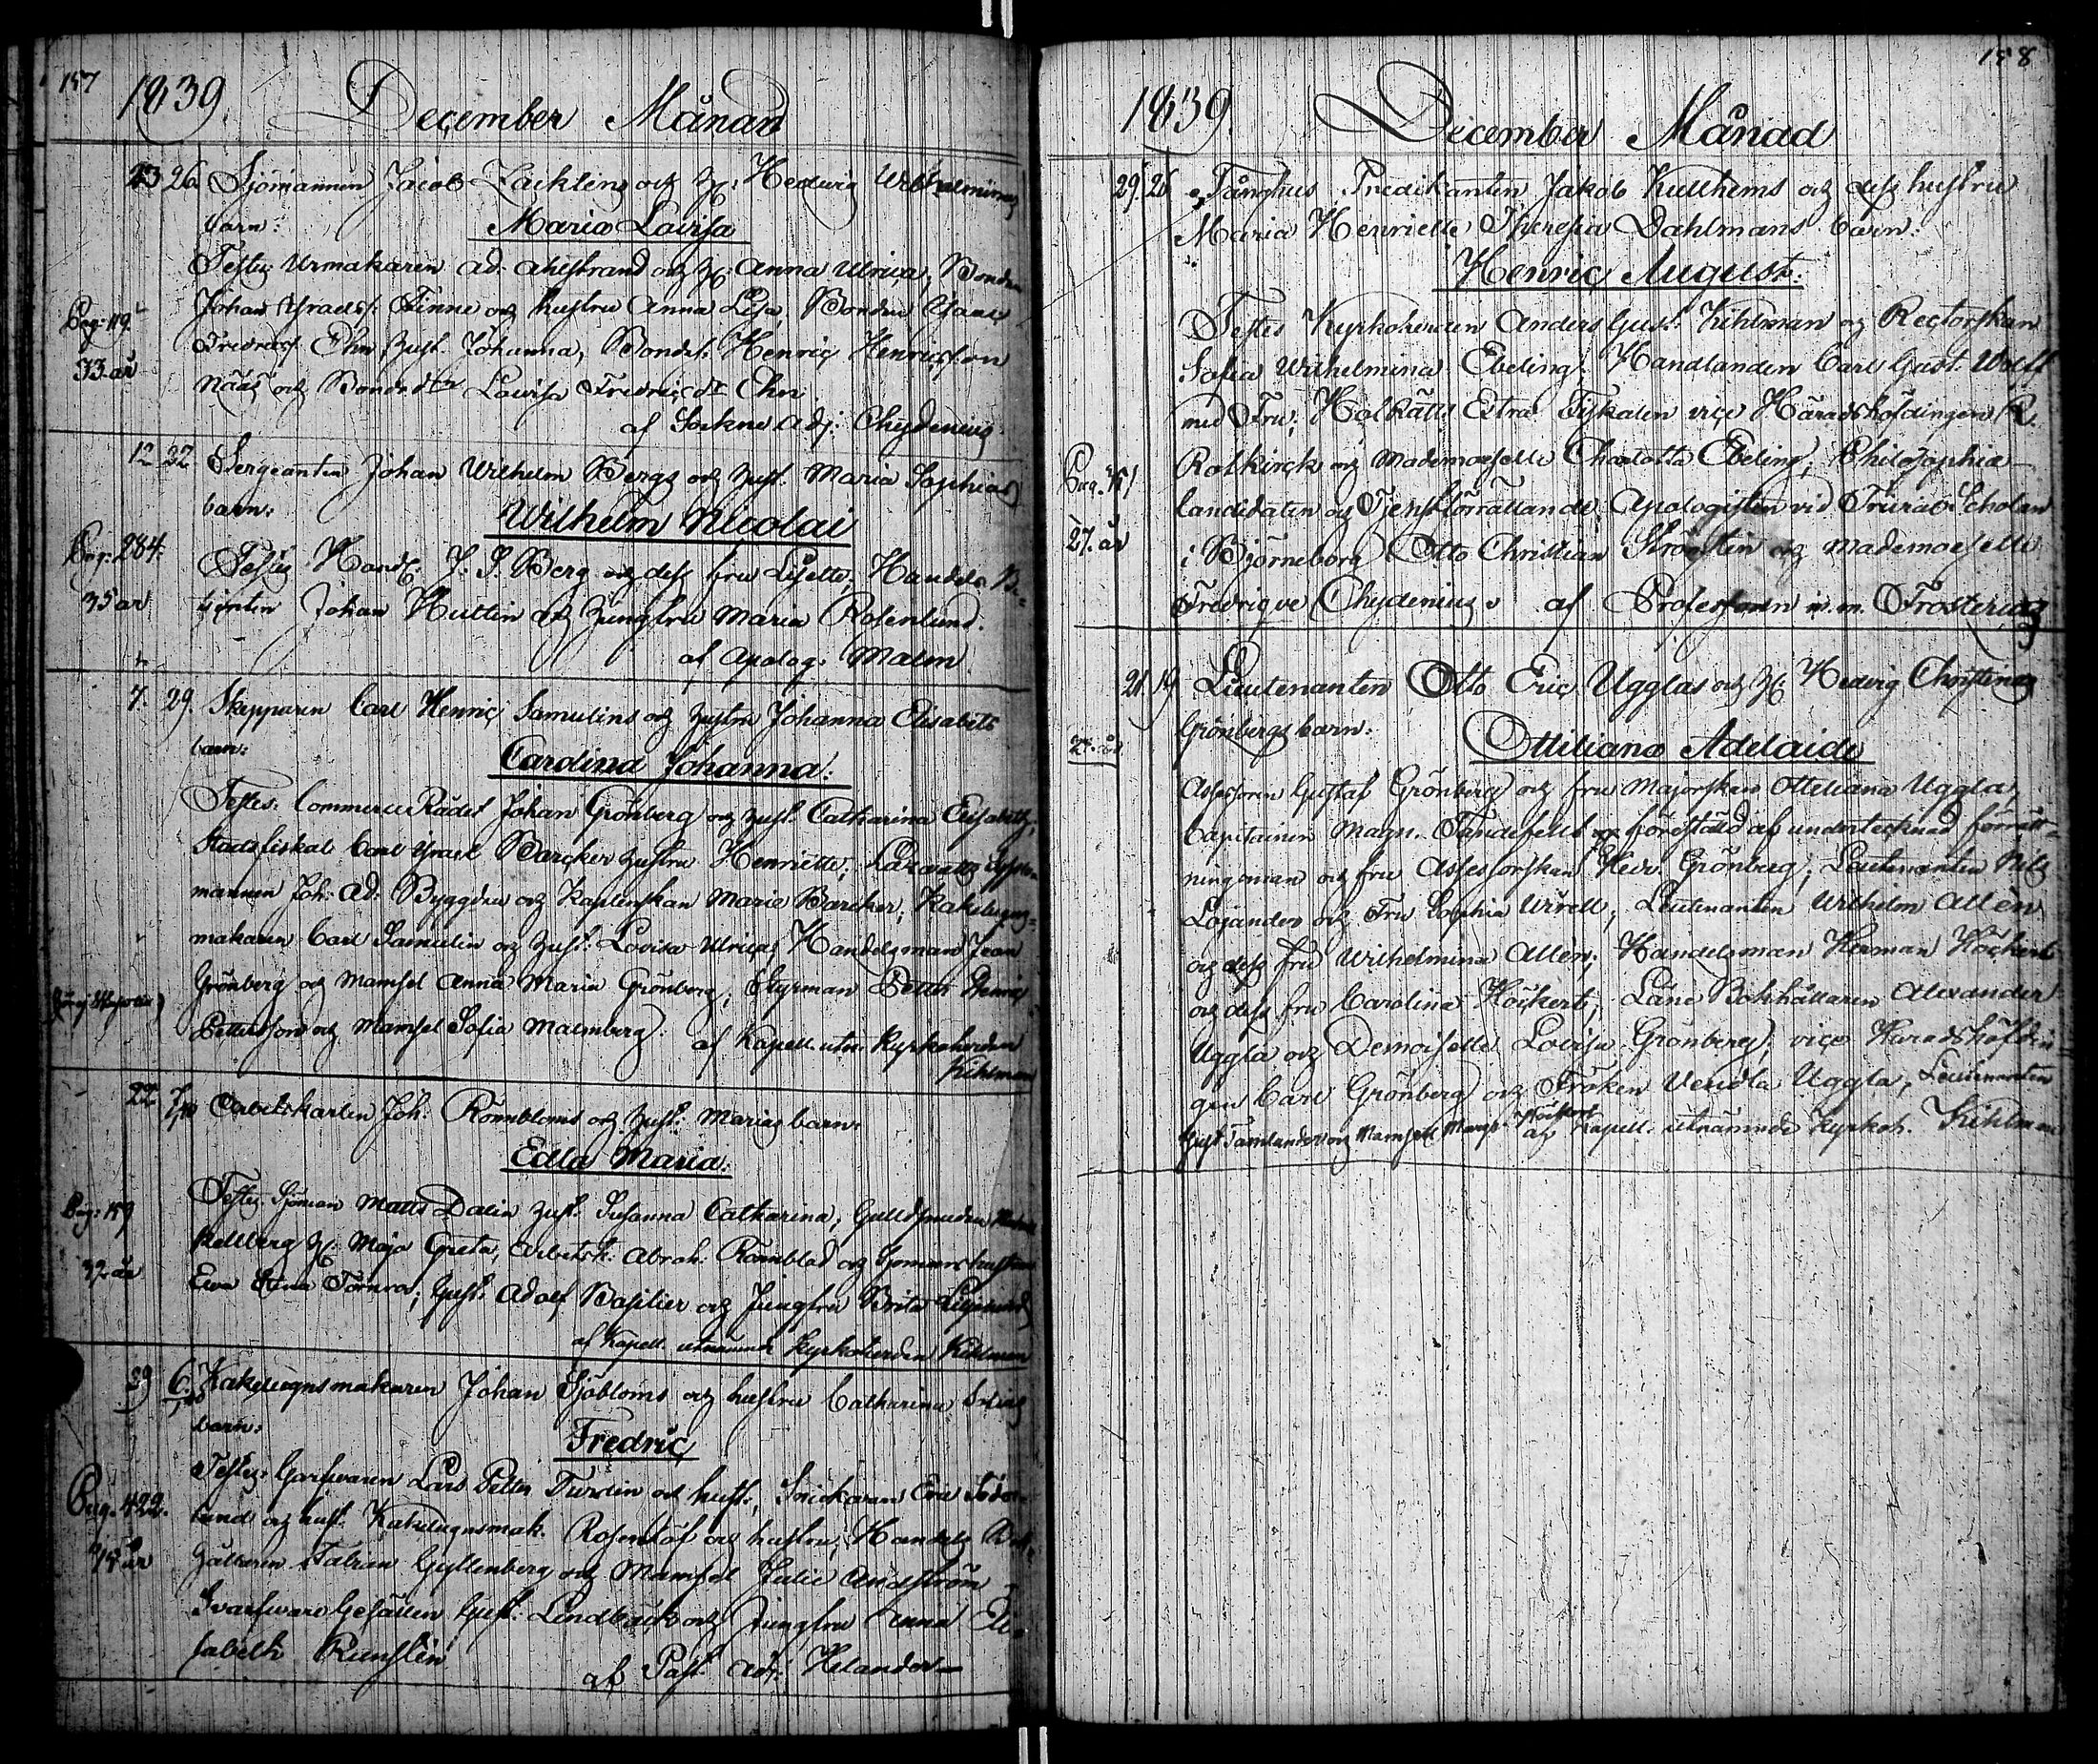 157
1839 December Månad
23 26 Sjömannen Jacob Lacklins och H: Hedwig Wilhelminas
barn:
Maria Lovisa
Testes Urmakaren Ad: Ahlstrand och H: Anna Ulrica, Bonden
Johan Finne och hustru Anna Lisa, Bonden
Pag: 119
33 år
Ehn hust. Johanna, Bondes. Henric Henricsson
Nääs och Bondedtr Lovisa Fredricdr Ehn
af Sockne Adj: Chydenius
12 22 Sergeanten Johan Wilhelm Bergs och hust. Maria Sophias
barn:
Wilhelm Nicolai
Pag: 284.
35 år
Testes Handl: J. S. Berg och dess fru Lisette, Handels Be-
tjenten Johan Huttin och Jungfru Maria Rosenlund.
af Apolog: Malm
7. 29. Skepparen Carl Henric Samulins och hustru Johanna Elisabets
barn:
Carolina Johanna:
Testes: Commerce Rådet Johan Grönberg och hust. Catharina Elisabeth,
Stadsfiskal Carl Israel Barcker hustru Henriette, Lazaretts Syssl
mannen Joh: Ad: Byggden och Kaplenskan Marie Barcker, Kakelugns-
makaren Carl Samulin och hust: Lovisa Ulrica, Handelsman Jean
Grönberg och Mamsel Anna Maria Grönberg, Styrman Petter Henric
Pettersson och Mamsel Sofia Malmberg.
af Kapell. utn: Kyrkoherden
Kihlman
22 Arbetskarlen Joh: Römbloms och hust: Marias barn:
Edla Maria.
Pag: 159
32 år
Testes Sjöman Matts Dalin hust. Susanna Catharina, Gulldsmeden
Kellberg H: Maja Greta, Arbetsk: Abrah: Römblad och Sjömans hustrun
Eva Stina Törnros, Gust: Adolf Basilier och Jungfru Brita
af Kapell. utnämnde Kyrkoherden Kihlman
29 6 Kakelugnsmakaren Johan Sjöbloms och hustru Catharina
barn:
Fredric
Pag. 422.
Testes: Garfvaren Lars Petter Turdin och hust:, Snickaren Söder-
lund och hust. Kakelugnsmak: Rosenlöf och hustru, Handels Bok-
hållaren Fabian Gyllenberg och Mamsel Julie Andström
Svarfvare Gesällen Gust: Lindbäck och Jungfru Anna Eli-
sabeth Runslin
af Past. Adj: Helander
158
1839. December Månad
29. 26 Fånghus Predikanten Jakob Kullhems och dess hustru
Maria Henriette Theresia Dahlmans barn:
Henric August:
Testes Kyrkoherden Anders Gust. Kihlman och Rectorskan
Sofia Wilhelmina Ebeling, Handlanden Carl Gust. Wolff
med Fru, HofRätts Extra Fiskalen vice Häradshöfdingen R.
Pag.
27. år
Rotkirch och Mademoiselle Charlotta Ebeling, Philosophie
Candidaten och Tjenstförrättande Apologisten vid Trivial Scholan
i Björneborg Otto Christian och Mademoiselle
Fredrique Chydenius af Professoren m. m. Frosterus
21 19 Lieutenanten Otto Eric Ugglas och H: Hedvig Christinas
Grönbergs barn:
Ottiliana Adelaide
Assessoren Gustaf Grönberg och fru Majorskan Otteliana Uggla,
Capitainen Magn. Tandefelt förestälId af undertecknad förrätt-
ningsman och fru Assessorskan Hedv: Grönberg, Lieutenanten Nils
Lojander och Fru Sophia Wirell, Lieutenanten Wilhelm Allén
och dess fru Wilhelmina Allén, Handelsman Herman Höckert
och dess fru Carolina Höckert, Läns Bokhållaren Alexander
Uggla och Demoiselle Lovisa Grönberg, vice Häradshöfdin-
gen Carl Grönberg och Fröken Vendla Uggla, Lieutenanten
Gust Tamlander och Mamsell Höckert af Kapell. utnämnde Kyrkoh. Kihlman